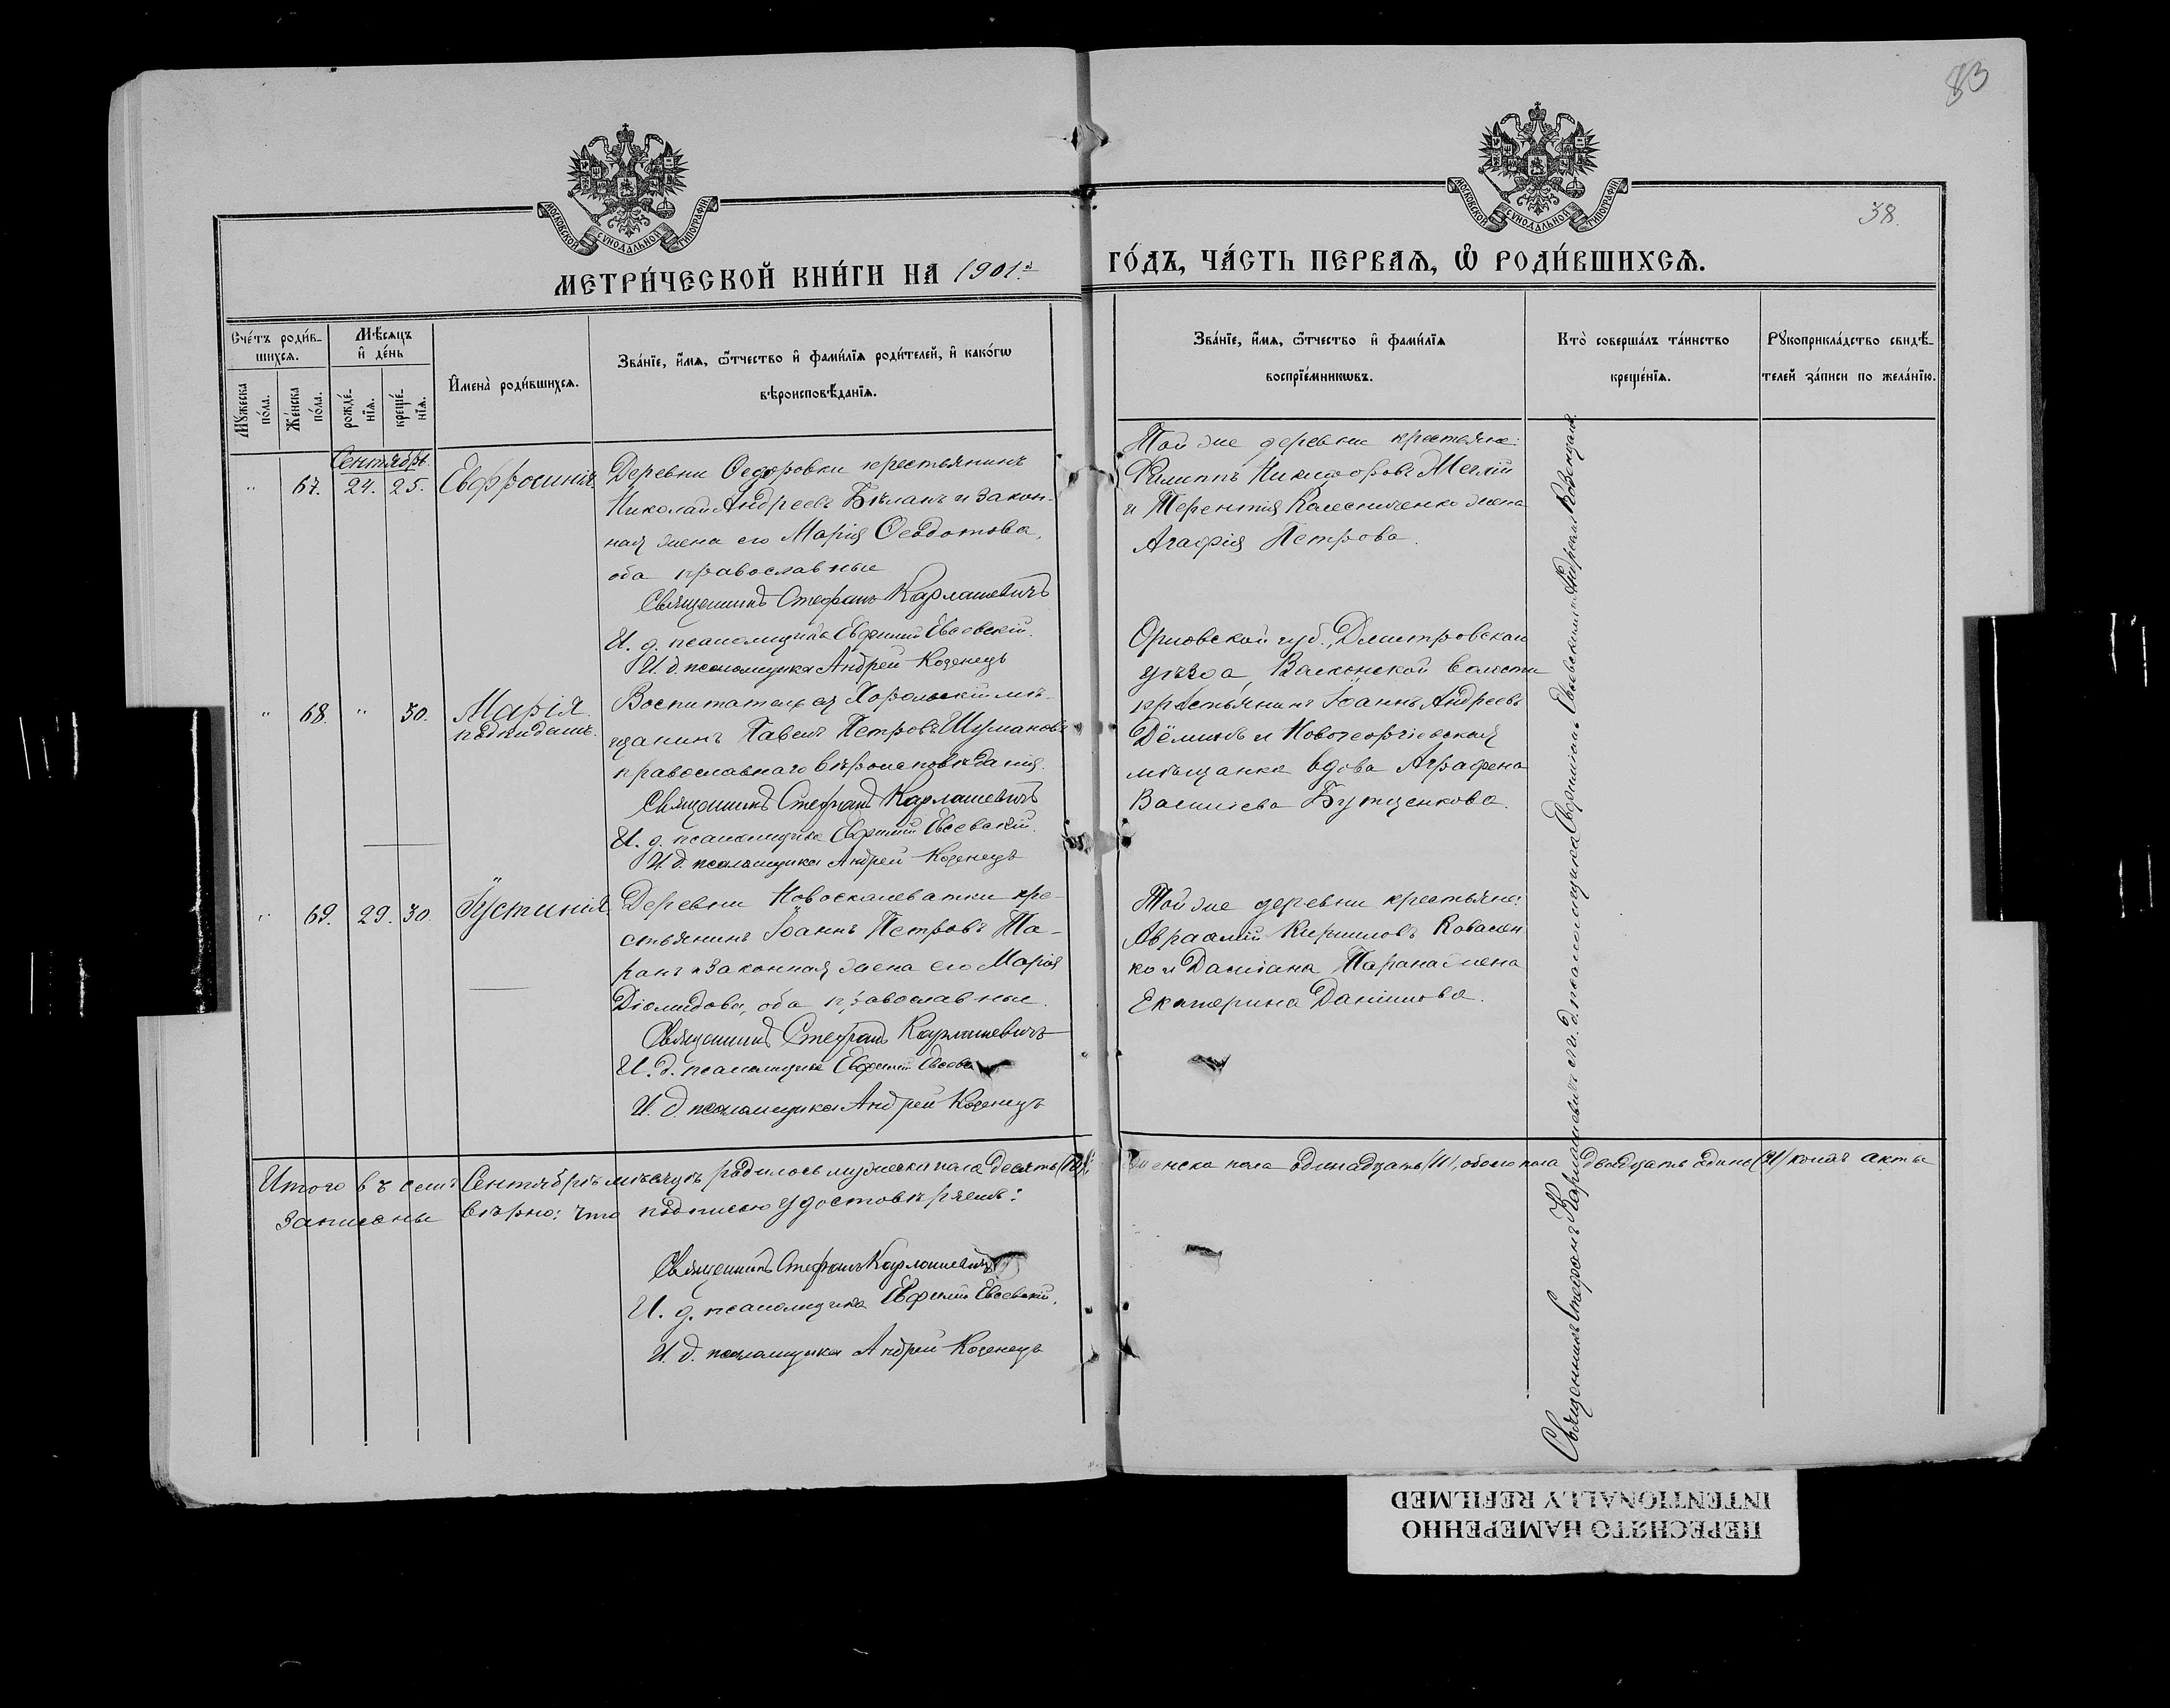 83
38.
МОСКОВСКОЙ СУНОДАЛЬНОЙ ТИПОГРАФІИ
МОСКОВСКОЙ СУНОДАЛЬНОЙ ТИПОГРАФІИ
МЕТРИ́ЧЕСКОЙ КНИ́ГИ НА 1901.й ГО́ДЪ, ЧА́СТЬ ПЕРВАѦ, Ѡ҆ РОДИ́ВШИХСѦ.
Сче́тъ роди́в-
шихсѧ.
Мѹжеска по́ла.
Же́нска по́ла.
Мѣ́сяцъ и҆ де́нь
рожде́-
нїѧ.
креще́-
нїѧ.
И҆мена̀ роди́вшихсѧ.
Зва́нїе, и҆́мѧ, ѻ҆́тчество и҆ фами́лїѧ роди́телей, и҆ како́гѡ
вѣроисповѣ́данїѧ.
Зва́нїе, и҆́мѧ, ѻ҆́тчество и҆ фами́лїѧ
воспрїе́мникѡвъ.
Кто̀ соверша́лъ та́инство
креще́нїѧ.
Рѹкоприкла́дство свидѣ́-
телей за́писи по жела́нїю.
Сентябрь.
" 67. 24. 25. Евфросинія.
Деревни Ѳедоровки крестьянинъ
Николай Андреевъ Бѣланъ и закон-
ная жена его Марія Ѳеодотова,
оба православные
Священникъ Стефанъ Карлашевичъ
И. д. псаломщика Евфимій Евсевскій.
И. д. псаломщика Андрей Козенецъ
Той же деревни крестьяне:
Филиппъ Никифоровъ Меглій
и Терентія Колесниченко жена
Агафія Петрова.
" 68. " 30. Марія
подкидышъ.
Воспитатель ея Хорольскій мѣ-
щанинъ Павелъ Петровъ Шумановъ
православнаго вѣроисповѣданія.
Священникъ Стефанъ Карлашевичъ
И. д. псаломщика Евфимій Евсевскій.
И. д. псаломщика Андрей Козенецъ
Орловской губ., Дмитровскаго
уѣзда, Волконской волости
крестьянинъ Іоаннъ Андреевъ
Дёминъ и Новогеоргіевская
мѣщанка вдова Аграфена
Васильева Бутценкова.
" 69. 29. 30. Іустинія.
Деревни Новоскалеватки кре-
стьянинъ Іоаннъ Петровъ Та-
ранъ и законная жена его Марія
Діомидова, оба православные.
Священникъ Стефанъ Карлашевичъ
И. д. псаломщика Евфимій Евсевс
И. д. псаломщика Андрей Козенецъ
Той же деревни крестьяне:
Авраамій Кирилловъ Ковален-
ко и Даміана Тарана жена
Екатерина Даніилова.
Священникъ Стефанъ Карлашевичъ съ и. д. псаломщика Евфиміемъ Евсевскимъ и Андреемъ Козенцомъ.
Итого въ семъ Сентябрѣ мѣсяцѣ родилось мужеска пола десять (10), женска пола одинадцать (11), обоего пола двадцать одинъ (21) коихъ акты
записаны вѣрно: что подписью удостовѣряемъ:
Священникъ Стефанъ Карлашевичъ
И. д. псаломщика Евфимій Евсевскій.
И. д. псаломщика Андрей Козенецъ
ПЕРЕСНЯТО НАМЕРЕННО
INTENTIONALLY REFILMED